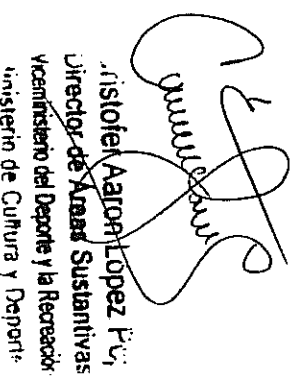 ristofer Aaron López
Director de Areas Sustantivas
Viceministerio del Deporte y la Recreación
inisterio de Cultura y Deporte